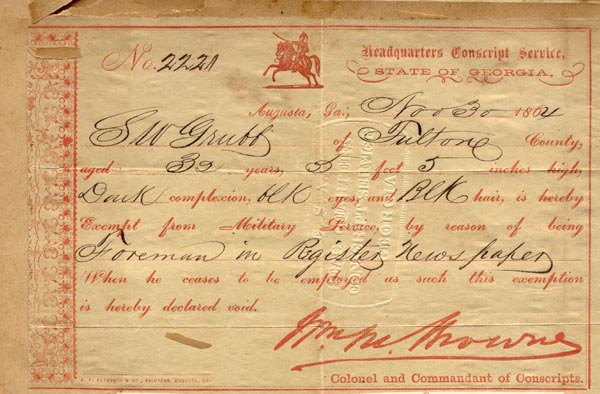 No. 2221
Headquarters Conscript Service,
STATE OF GEORGIA,
Augusta, Ga., Nov 30 1864
S W Grubb of Fulton County,
aged 32 years, 5 feet 5 inches high,
Dark complexion, blk eyes, and Blk hair, is hereby
Exempt from Military Service, by reason of being
Foreman in Register Newspaper
When he ceases to be employed as such this exemption
is hereby declared void.
Wm M. Browne
Colonel and Commandant of Conscripts.
PRINTERS, AUGUSTA, GA.